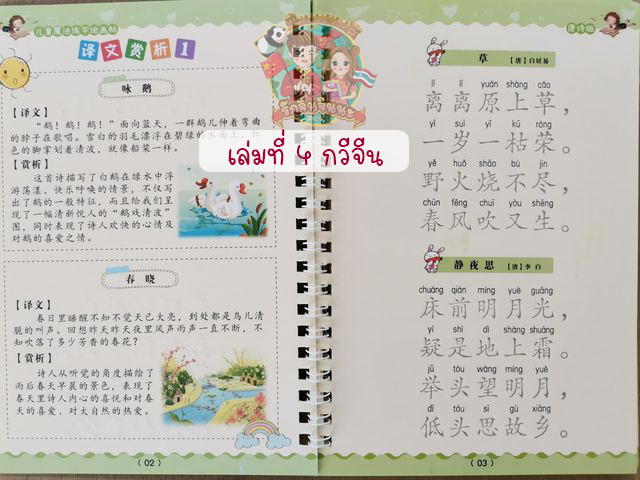 儿童魔法练字绘画帖
译文赏析1
咏 鹅
【译文】
“鹅！鹅！鹅！”面向蓝天，一群鹅儿伸着弯曲
的脖子在歌唱。雪白的羽毛漂浮在碧绿的水面上，红
色的脚掌划着清波，就像船桨一样。
【赏析】
这首诗描写了白鹅在绿水中浮
游荡漾、快乐呼唤的情景，不仅写
出了鹅的一般特征，而且给我们呈
现了一幅清新悦人的“鹅戏清波”
图，同时表现了诗人欢快的心情及
对鹅的喜爱之情。
春 晓
【译文】
春日里睡醒不知不觉天已大亮，到处都是鸟儿清
脆的叫声。回想昨天昨天夜里风声雨声一直不断，不
知吹落了多少芳香的春花？
【赏析】
诗人从听觉的角度描绘了
雨后春天早晨的景色，表现了
春天里诗人内心的喜悦和对春
天的喜爱、对大自然的热爱。
(02)
รักจีนจินนะ
เล่มที่ 4 กวีจีน
唐诗版
草 【唐】白居易
lí lí yuán shàng cǎo
离离原上草，
yí suì yì kū róng
一岁一枯荣。
yě huǒ shāo bù jìn
野火烧不尽，
chūn fēng chuī yòu shēng
春风吹又生。
静夜思 【唐】李白
chuáng qián míng yuè guāng
床前明月光，
yí shì dì shàng shuāng
疑是地上霜。
jǔ tóu wàng míng yuè
举头望明月，
dī tóu sī gù xiāng
低头思故乡。
(03)